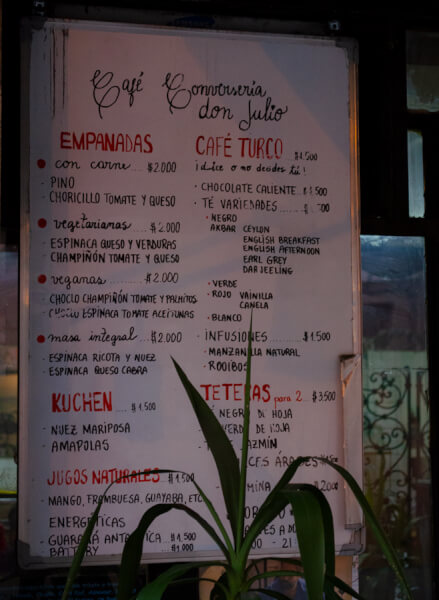 Café Conversería
don Julio
EMPANADAS
con carne.... $2.000
- PINO
- CHORICILLO TOMATE Y QUESO
vegetarianas... $2.000
ESPINACA QUESO Y VERDURAS
- CHAMPIÑÓN TOMATE Y QUESO
veganas............$2.000
- CHOCLO CHAMPIÑÓN TOMATE Y PALMITOS
- CHOCLO ESPINACA TOMATE ACEITUNAS
masa integral...$2.000
- ESPINACA RICOTA Y NUEZ
- ESPINACA QUESO CABRA
KUCHEN.... $1.500
- NUEZ MARIPOSA
- AMAPOLAS
JUGOS NATURALES...$1.500
- MANGO, FRAMBUESA, GUAYABA, ETC
ENERGÉTICAS
- GUARANÁ ANTARTICA $1.500
BATTERY $1.000
CAFÉ TURCO...$1.500
¡dulce o no decides tú!
- CHOCOLATE CALIENTE
- TÉ VARIEDADES
- NEGRO
AKBAR CEYLON
ENGLISH BREAKFAST
ENGLISH AFTERNOON
EARL GREY
DARJEELING
- VERDE
- ROJO VAINILLA
CANELA
- BLANCO
- INFUSIONES........$1.500
- MANZANILLA NATURAL
- ROOIBOS
TETERAS para 2...$3.500
TÉ NEGRO DE HOJA
VERDE DE HOJA